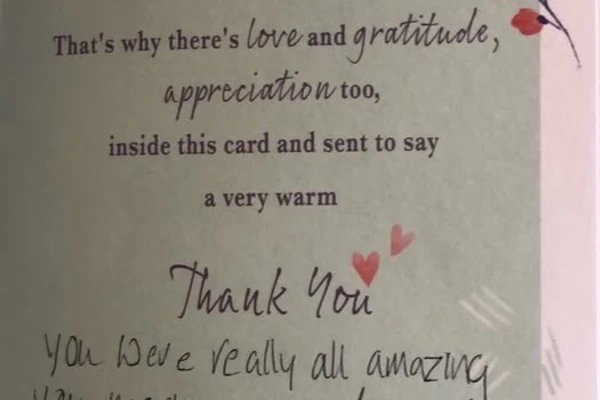 That's why there's love and gratitude,
appreciation too,
inside this card and sent to say
a very warm
Thank You
you were really all amazing